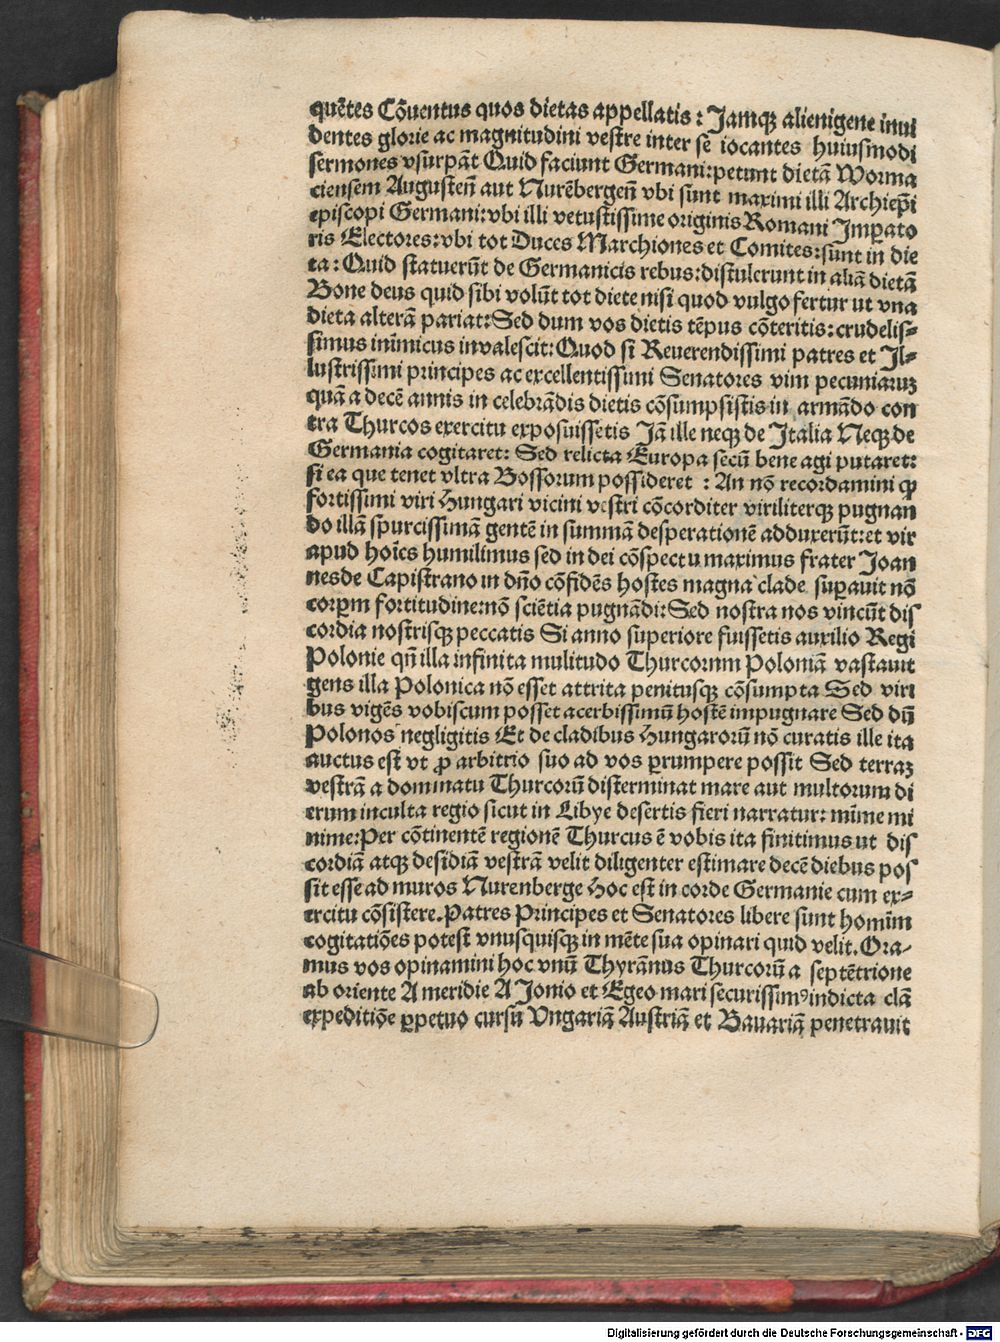 quētes Cōuentus quos dietas appellatis : Jamqꝫ alienigene inui
dentes glorie ac magnitudini vestre inter se iocantes huiusmodi
sermones vsurpāt Quid faciunt Germani:petunt dietā Worma
ciensem Augusteñ aut Nurēbergeñ vbi sunt maximi illi Archiep̄i
episcopi Germani:vbi illi vetustissime originis Romani Imꝑato
ris Electores:vbi tot Duces Marchiones et Comites:sunt in die
ta : Quid statuerūt de Germanicis rebus:distulerunt in aliā dietā
Bone deus quid sibi volūt tot diete nisi quod vulgo fertur ut vna
dieta alterā pariat:Sed dum vos dietis tēpus cōteritis:crudelis⸗
simus inimicus inualescit:Quod si Reuerendissimi patres et Il⸗
lustrissimi principes ac excellentissimi Senatores vim pecuniaruꝫ
quā a decē annis in celebrādis dietis cōsumpsistis in armādo con
tra Thurcos exercitu exposuissetis Jā ille neqꝫ de Italia Neqꝫ de
Germania cogitaret: Sed relicta Europa secū bene agi putaret:
si ea que tenet vltra Bosforum possideret : An nō recordamini ꝙ
fortissimi viri Hungari vicini vestri cōcorditer viriliterqꝫ pugnan
do illā spurcissimā gentē in summā desperationē adduxerūt:et vir
apud hoīes humilimus sed in dei cōspectu maximus frater Joan
nesde Capistrano in dño cōfidēs hostes magna clade suꝑauit nō
corꝑm fortitudine:nō sciētia pugnādi:Sed nostra nos vincūt dis
cordia nostrisqꝫ peccatis Si anno superiore fuissetis auxilio Regi
Polonie qñ illa infinita mulitudo Thurcornm Poloniā vastauit
gens illa Polonica nō esset attrita penitusqꝫ cōsumpta Sed viri
bus vigēs vobiscum posset acerbissimū hostē impugnare Sed dū
Polonos negligitis Et de cladibus Hungarorū nō curatis ille ita
auctus est vt ꝓ arbitrio suo ad vos ꝑrumpere possit Sed terraꝫ
vestrā a dominatu Thurcorū disterminat mare aut multorum di
erum inculta regio sicut in Libye desertis fieri narratur: mīme mi
nime:Per cōtinentē regionē Thurcus ē vobis ita finitimus ut dis
cordiā atqꝫ desidiā vestrā velit diligenter estimare decē diebus pos
sit esse ad muros Nurenberge Hoc est in corde Germanie cum ex⸗
ercitu cōsistere.Patres Principes et Senatores libere sunt homīm
cogitatiōes potest vnusquisqꝫ in mēte sua opinari quid velit.Ora⸗
mus vos opinamini hoc vnū Thyrānus Thurcorū a septētrione
ab oriente A meridie A Jonio et Egeo mari securissimꝰ indicta clā
expeditiōe ꝑpetuo cursu Vngariā Austriā et Bauariā penetrauit
Digitalisierung gefördert durch die Deutsche Forschungsgemeinschaft - DFG